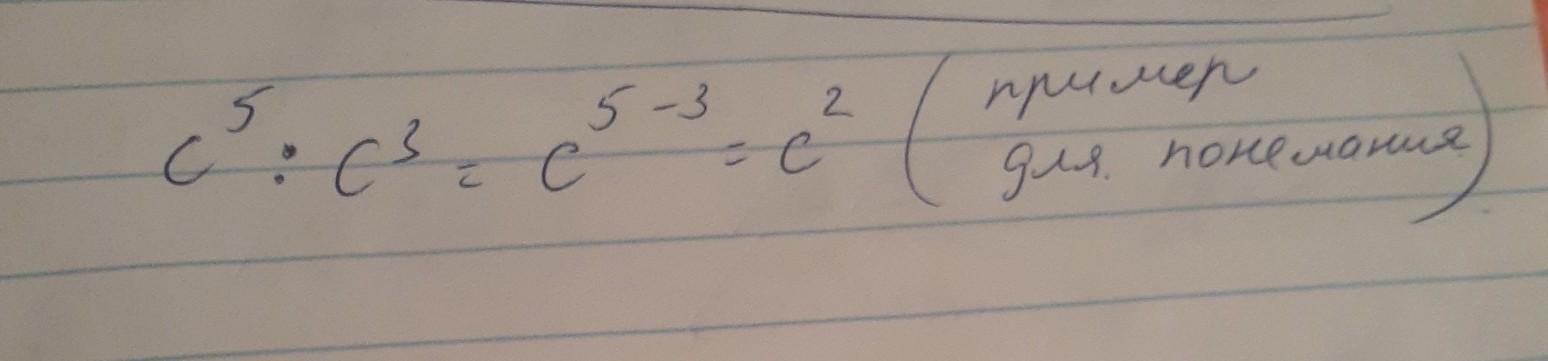 c⁵ : c³ = c⁵⁻³ = c² (пример
для понемания)